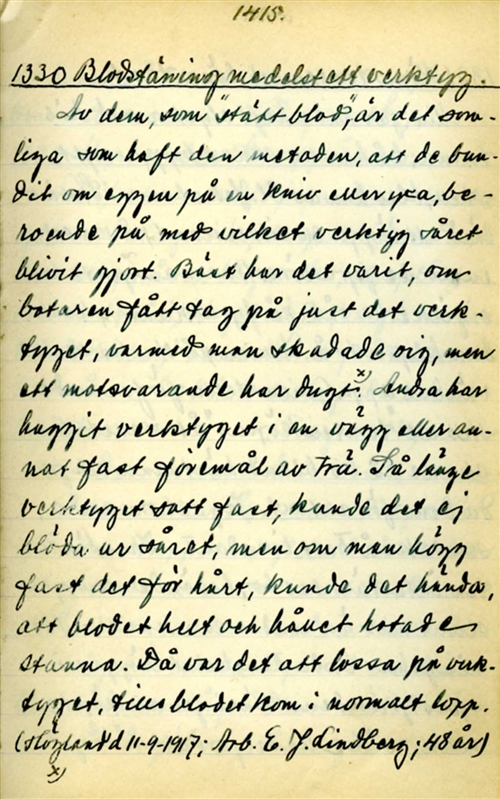 1415.
1330 Blodstäning medelst ett verktyg.
Av dem, som "stätt blod", är det som-
liga som haft den metoden, att de bun-
dit om eggen på en kniv eller yxa, be-
roende på med vilket verktyg såret
blivit gjort. Bäst har det varit, om
botaren fått tag på just det verk-
tyget, varmed man skadade sig, men
ett motsvarande har dugt x). Andra har
huggit verktyget i en vägg eller an-
nat fast föremål av trä. Så länge
verktyget satt fast, kunde det ej
blöda ur såret, men om man högg
fast det för hårt, kunde det hända,
att blodet helt och hållet hotade
stanna. Då var det att lossa på verk-
tyget, tills blodet kom i normalt lopp.
d 11-9-1917; Arb. E. J. Lindberg; 48 år)
x)